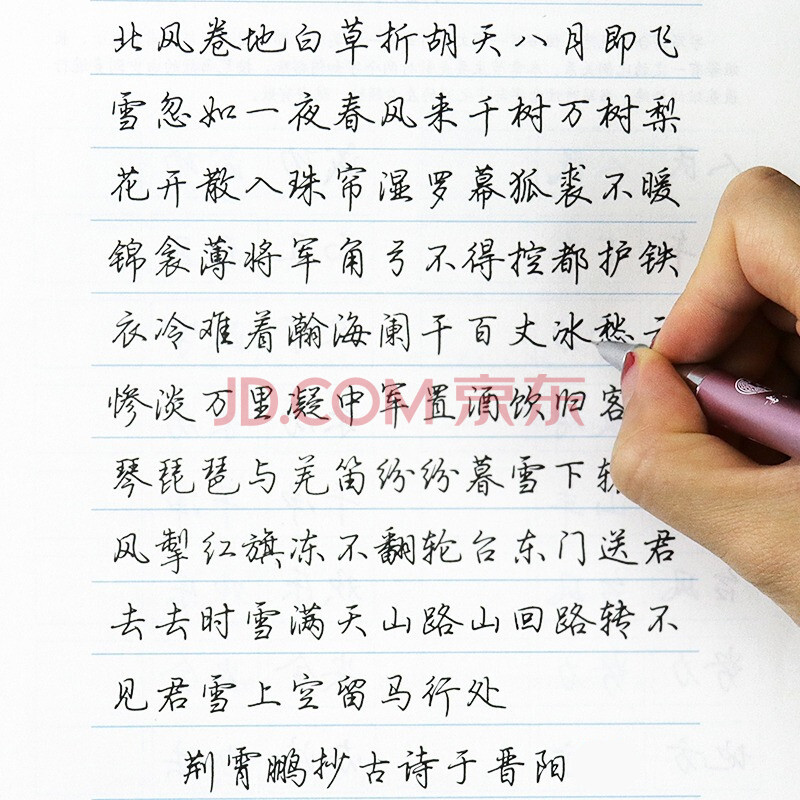 北风卷地白草折胡天八月即飞
雪忽如一夜春风来千树万树梨
花开散入珠帘湿罗幕狐裘不暖
锦衾薄将军角弓不得控都护铁
衣冷难着瀚海阑干百丈冰愁
惨淡万里凝中军置酒饮归客
JD.COM 京东
琴琵琶与羌笛纷纷暮雪下
风掣红旗冻不翻轮台东门送君
去去时雪满天山路山回路转不
见君雪上空留马行处
荆霄鹏抄古诗于晋阳